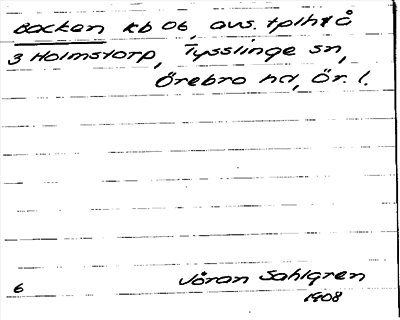 Backen kb 06, avs. tplht å
3 Holmstorp, Tysslinge sn,
Örebro hd, Ör. l.
6 Jöran Sahlgren
1908